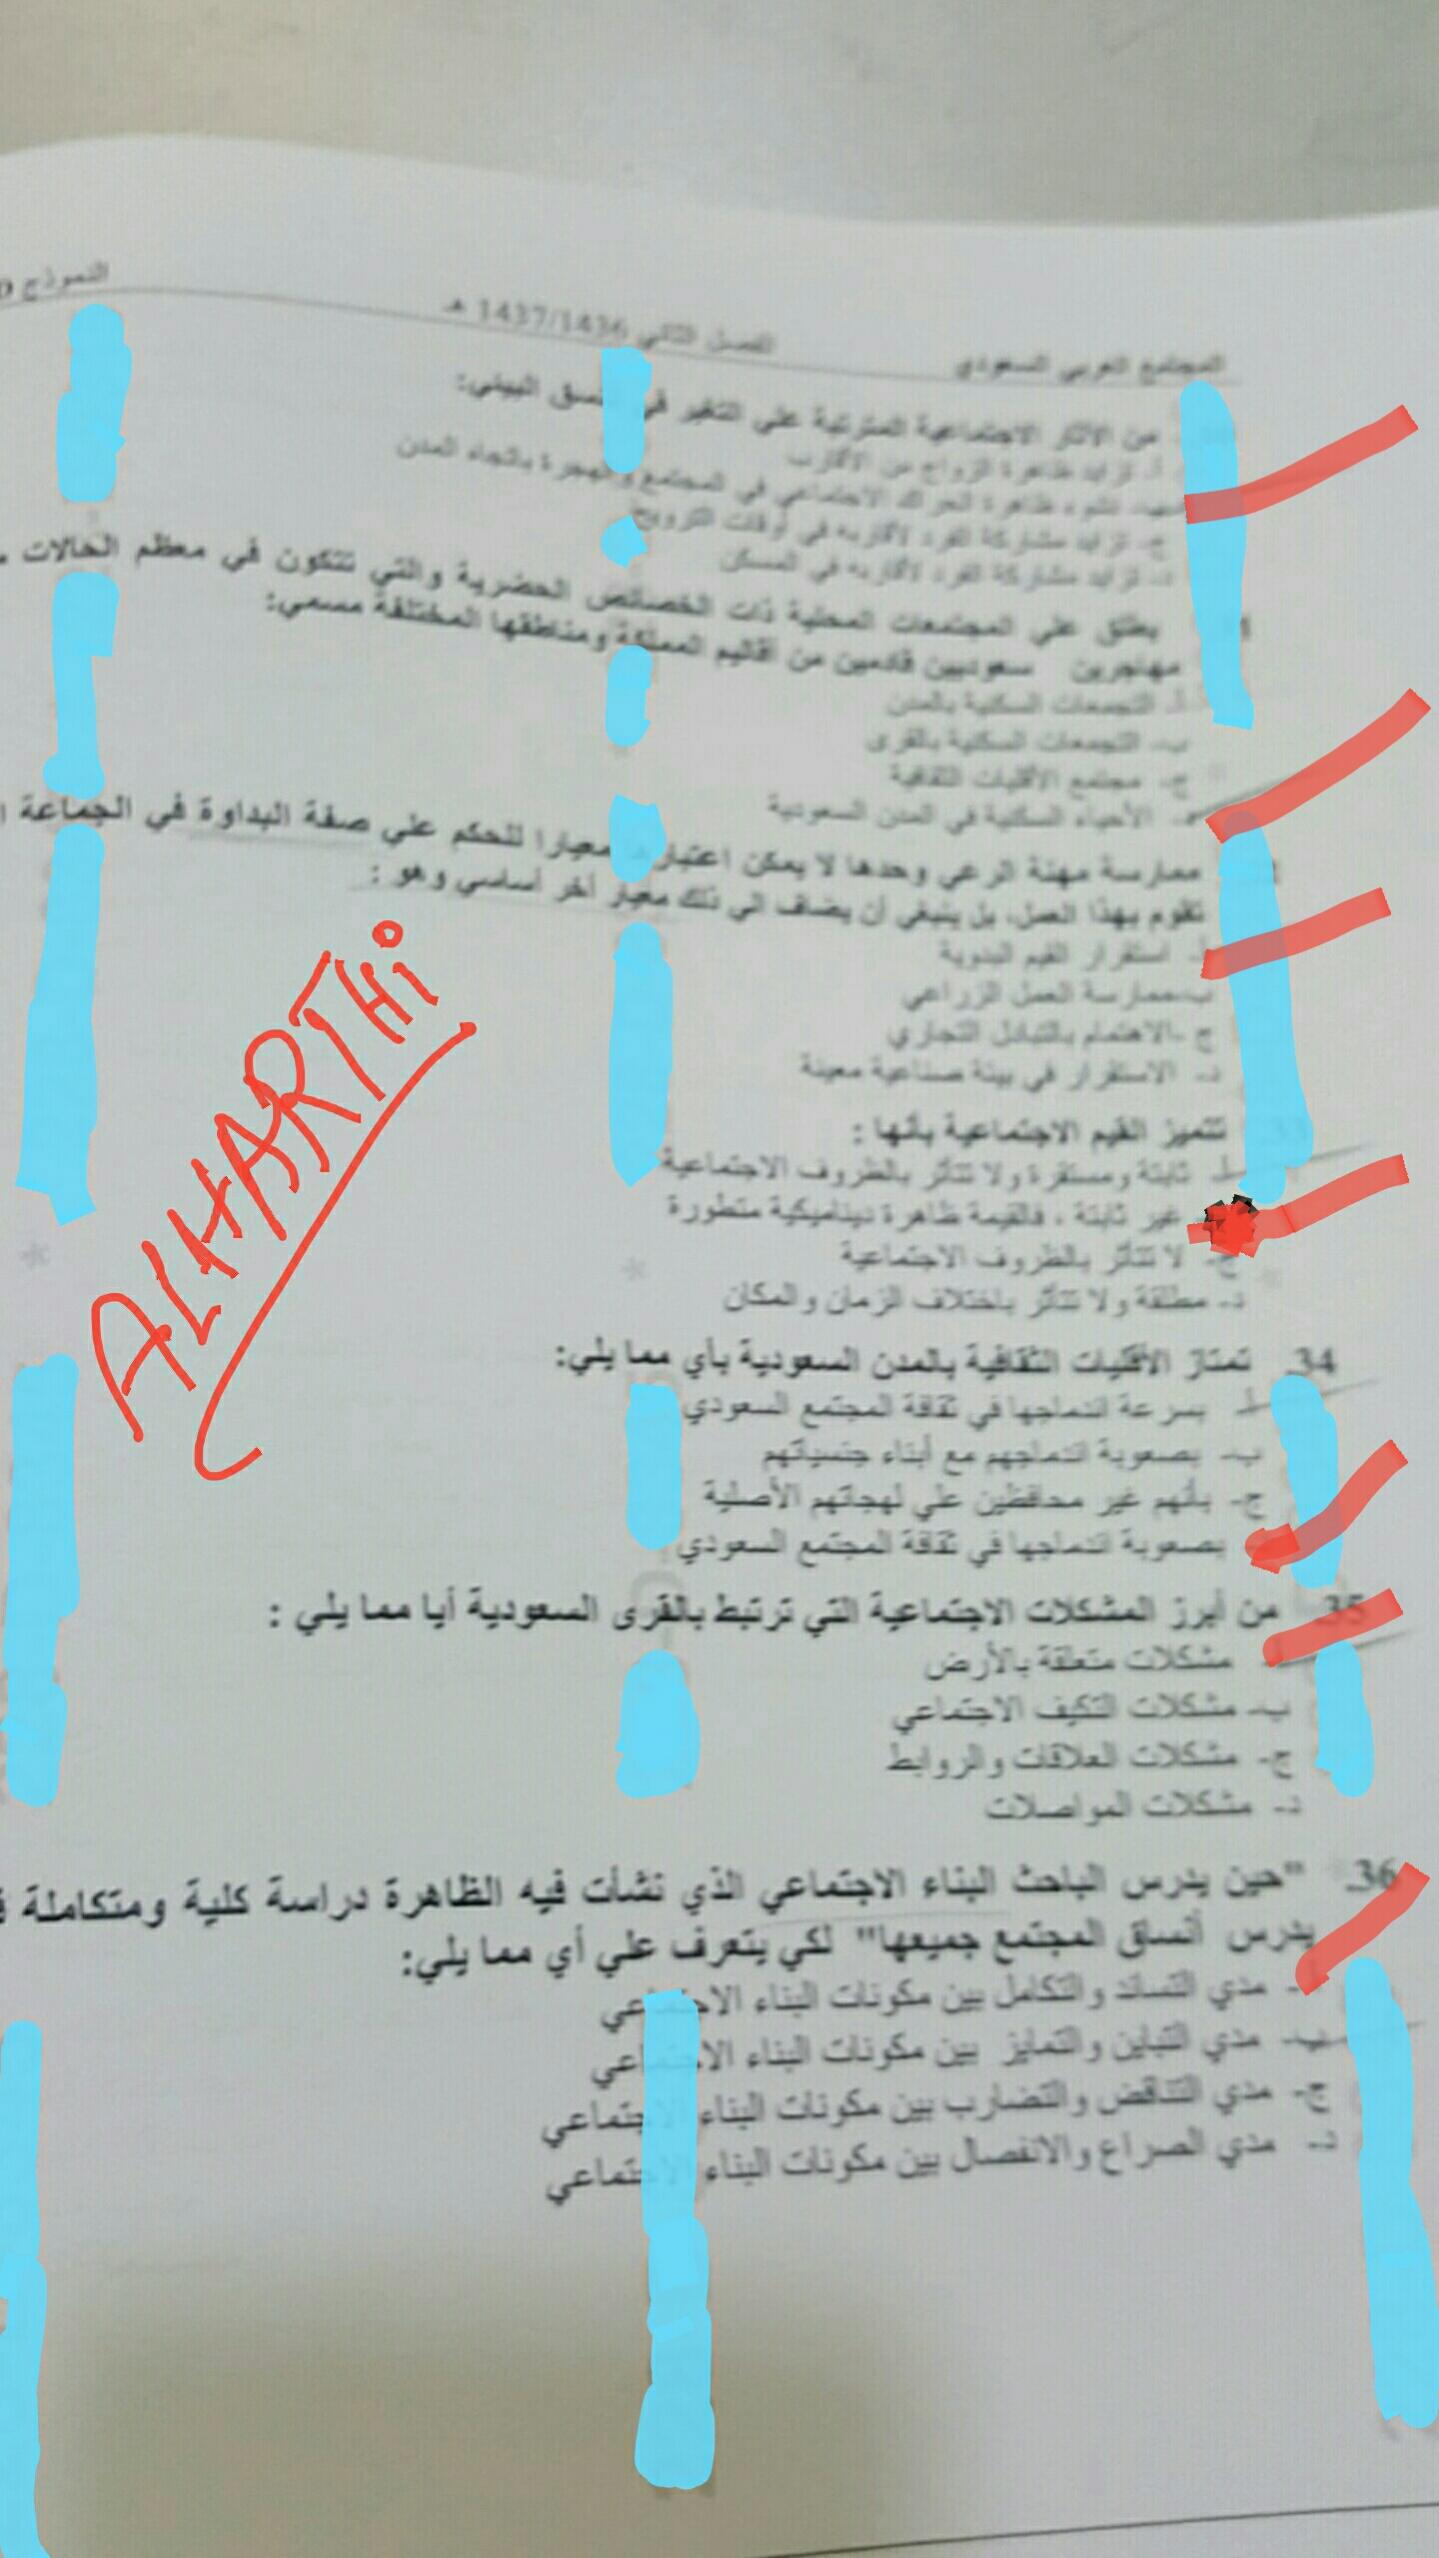 المجتمع العربي السعودي
الفصل الثاني 1437/1436 هـ
النموذج D
من الآثار الاجتماعية المترتبة علي التغير في النسق البيئي:
أ- تزايد ظاهرة الزواج من الأقارب
ب- نشوء ظاهرة الحراك الاجتماعي في المجتمع والهجرة باتجاه المدن
ج- تزايد مشاركة الفرد لأقاربه في أوقات الترويح
د- تزايد مشاركة الفرد لأقاربه في المسكن
يطلق علي المجتمعات المحلية ذات الخصائص الحضرية والتي تتكون في معظم الحالات
مهاجرين سعوديين قادمين من أقاليم المملكة ومناطقها المختلفة مسمي:
أ- التجمعات السكنية بالمدن
ب- التجمعات السكنية بالقرى
ج- مجتمع الأقليات الثقافية
د- الأحياء السكنية في المدن السعودية
ممارسة مهنة الرعي وحدها لا يمكن اعتبارها معيارا للحكم علي صفة البداوة في الجماعة
تقوم بهذا العمل، بل ينبغي أن يضاف الي ذلك معيار أخر أساسي وهو :
أ- استقرار القيم البدوية
ب-ممارسة العمل الزراعي
ج -الاهتمام بالتبادل التجاري
د- الاستقرار في بيئة صناعية معينة
33 تتميز القيم الاجتماعية بأنها :
أ- ثابتة ومستقرة ولا تتأثر بالظروف الاجتماعية
غير ثابتة ، فالقيمة ظاهرة ديناميكية متطورة
ج- لا تتأثر بالظروف الاجتماعية
د- مطلقة ولا تتأثر باختلاف الزمان والمكان
34. تمتاز الأقليات الثقافية بالمدن السعودية بأي مما يلي:
أ- بسرعة اندماجها في ثقافة المجتمع السعودي
ب- بصعوبة اندماجهم مع أبناء جنسياتهم
ج- بأنهم غير محافظين علي لهجاتهم الأصلية
بصعوبة اندماجها في ثقافة المجتمع السعودي
35. من أبرز المشكلات الاجتماعية التي ترتبط بالقرى السعودية أيا مما يلي :
مشكلات متعلقة بالأرض
ب- مشكلات التكيف الاجتماعي
ج- مشكلات العلاقات والروابط
د- مشكلات المواصلات
36. "حين يدرس الباحث البناء الاجتماعي الذي نشأت فيه الظاهرة دراسة كلية ومتكاملة
يدرس أنساق المجتمع جميعها" لكي يتعرف علي أي مما يلي:
أ- مدي التساند والتكامل بين مكونات البناء الاجتماعي
ب- مدي التباين والتمايز بين مكونات البناء الاجتماعي
ج- مدي التناقض والتضارب بين مكونات البناء الاجتماعي
د- مدي الصراع والانفصال بين مكونات البناء الاجتماعي
ALHARTHi